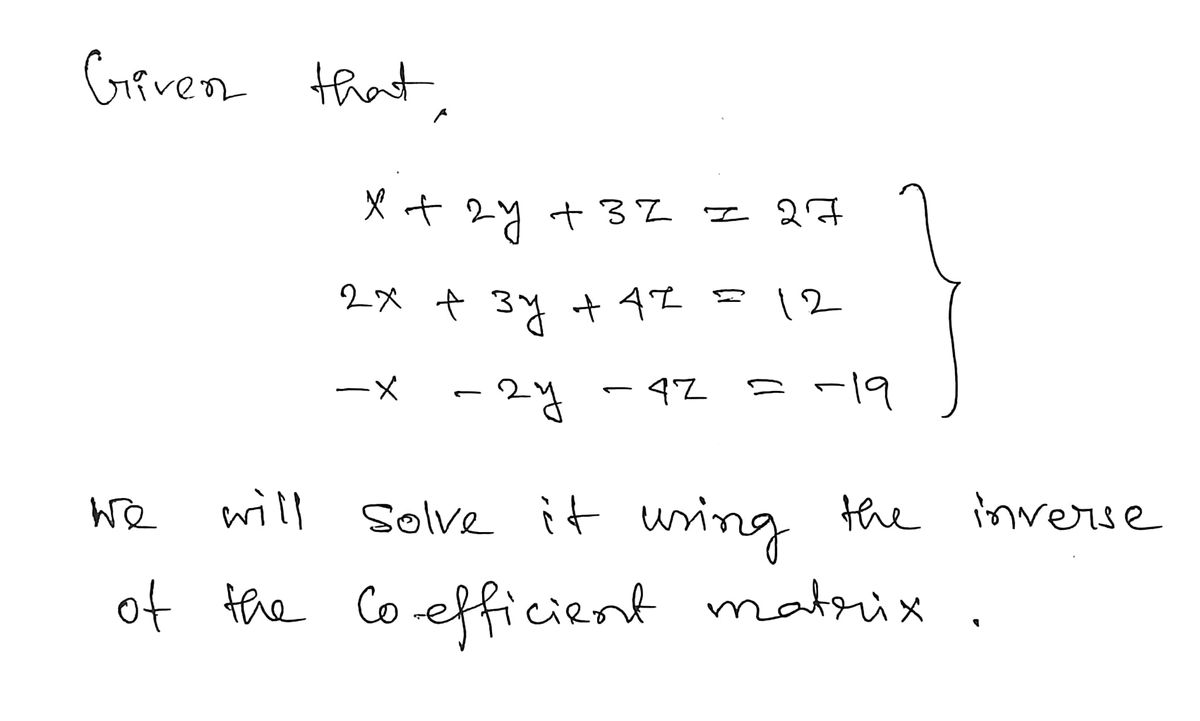 Given that,
x + 2y + 3z = 27
2x + 3y + 4z = 12
-x - 2y - 4z = -19
We will solve it using the inverse
of the Co-efficient matrix.